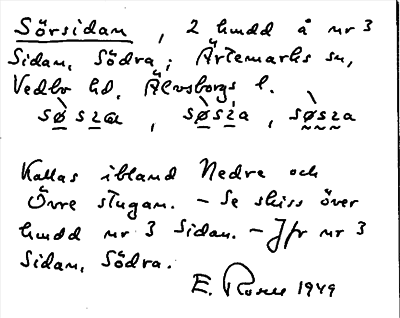 Sörsidan, 2 hmdd å nr 3
Sidan, Södra; Ärtemarks sn,
Vedbo hd, Älvsborgs l.
sø̀sza, sø̀sza, sø̀sza
Kallas ibland Nedre och
Övre stugan. – Se skiss över
hmdd nr 3 Sidan. – Jfr nr 3
Sidan, Södra.
E. Rosell 1949